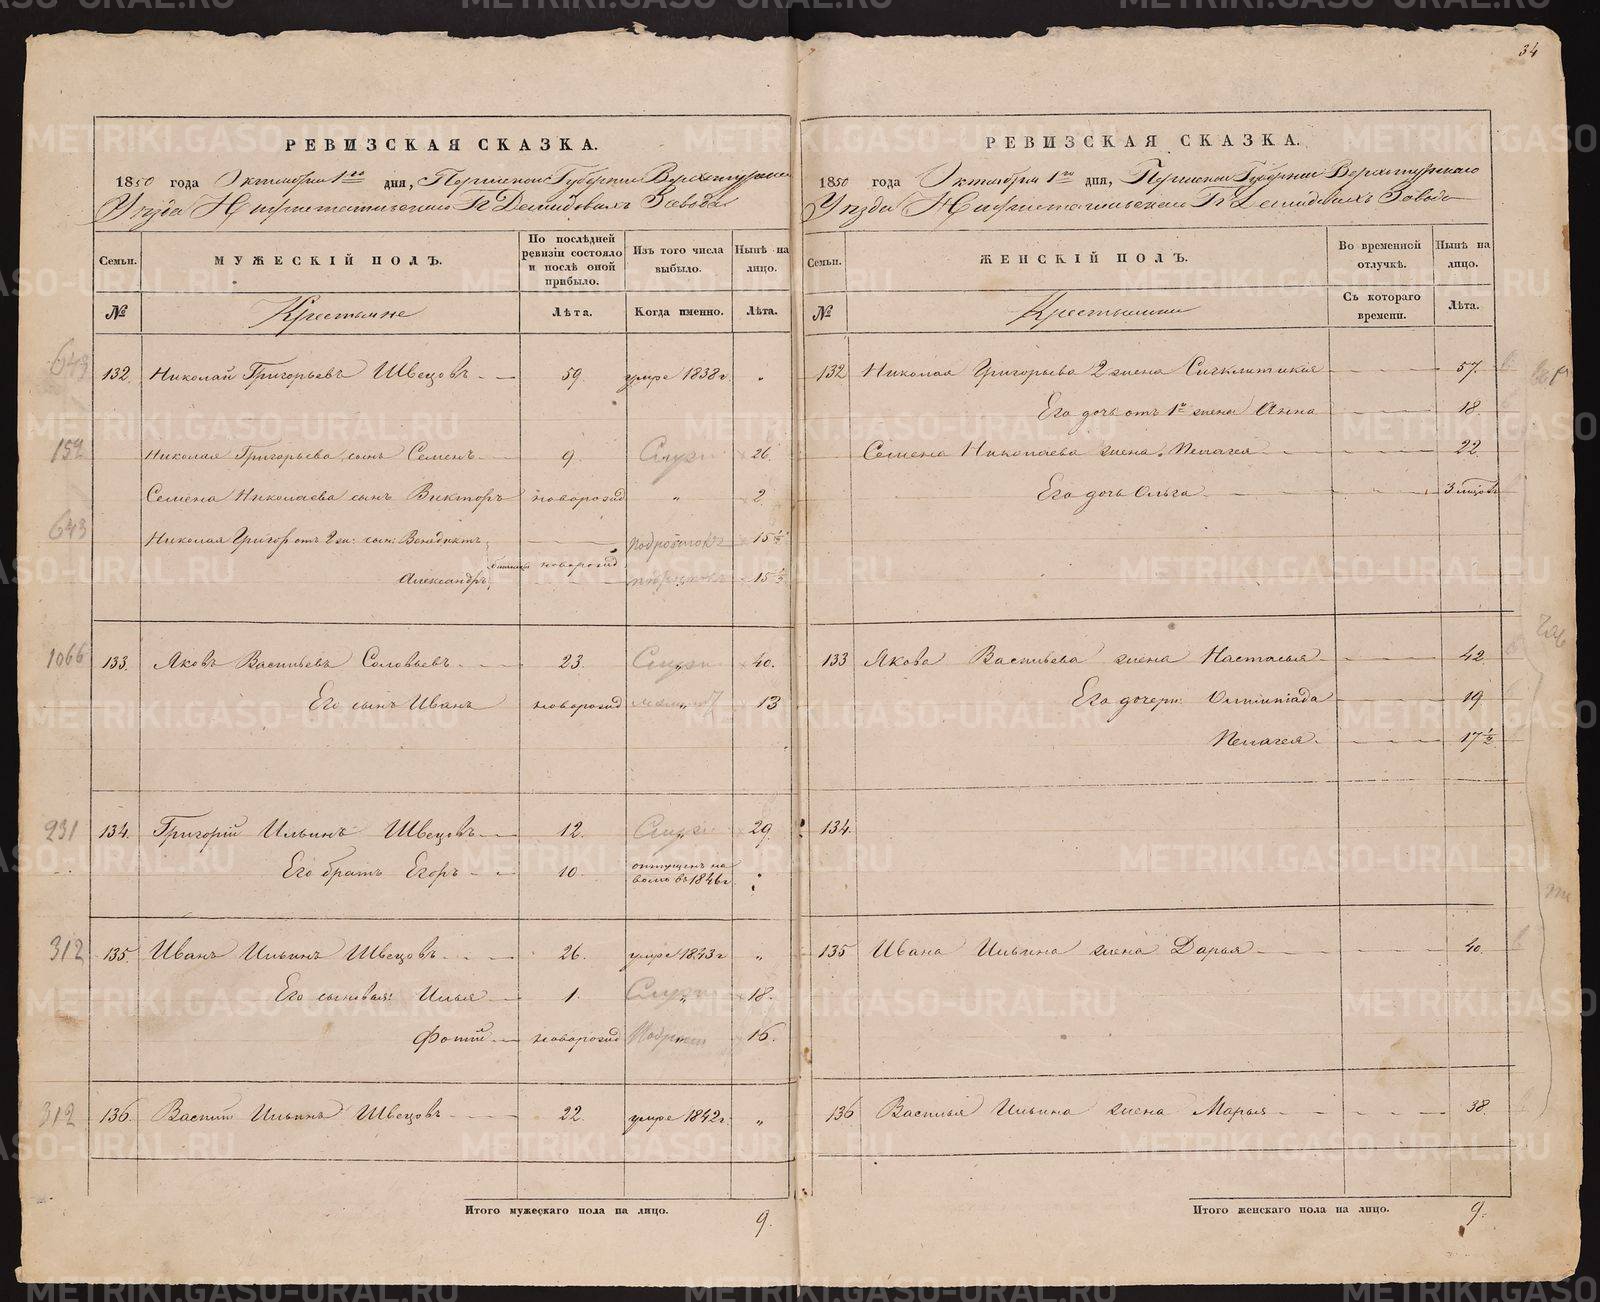 34
РЕВИЗСКАЯ СКАЗКА.
1850 года Октября 1го дня, Пермской Губернии Верхотурскаго
Уѣзда Нижнетагильскаго Гг Демидовыхъ Завода
Семьи. МУЖЕСКІЙ ПОЛЪ. По послѣдней ревизіи состояло и послѣ оной прибыло. Изъ того числа выбыло. Нынѣ на лицо.
№ Крестьяне Лѣта. Когда именно. Лѣта.
643 132. Николай Григорьевъ Швецовъ 59 умре 1838 г. „
152 Николая Григорьева сынъ Семенъ 9. Служ 26.
Семена Николаева сынъ Викторъ новорожд „ 2.
643 Николая Григор отъ 2 жен: сын: Венедиктъ новорожд Подростокъ 15 1/2
Александръ подростокъ 15 1/2
1066 133. Яковъ Васильевъ Соловьевъ 23. Служ 40.
Его сынъ Иванъ новорожд 13
931 134. Григорій Ильинъ Швецовъ 12. Служ 29.
Его братъ Егоръ 10. отпущенъ на волю въ 1846 г. „
312 135. Иванъ Ильинъ Швецовъ 26. умре 1843 г „
Его сыновья: Илья 1. Служ 18.
Фотій новорожд Подрост 16.
312 136. Василій Ильинъ Швецовъ 22. умре 1842 г. „
Итого мужескаго пола на лицо. 9.
РЕВИЗСКАЯ СКАЗКА.
1850 года Октября 1го дня, Пермской Губерніи Верхотурскаго
Уѣзда Нижнетагильскаго Гг Демидовыхъ Завода
Семьи. ЖЕНСКІЙ ПОЛЪ. Во временной отлучкѣ. Нынѣ на лицо.
№ Крестьянки Съ котораго времени. Лѣта.
132 Николая Григорьева 2 жена Сигклитикія 57.
Его дочь отъ 1й жены Анна 18.
Семена Николаева жена Пелагея 22.
Его дочь Ольга 3 мѣсяц
133 Якова Васильева жена Настасья 42.
Его дочери: Олимпіада 19
Пелагея. 17 1/2
134.
135 Ивана Ильина жена Дарья 40.
136 Василья Ильина жена Марья 38.
Итого женскаго пола на лицо. 9.
METRIKI.GASO-URAL.RU